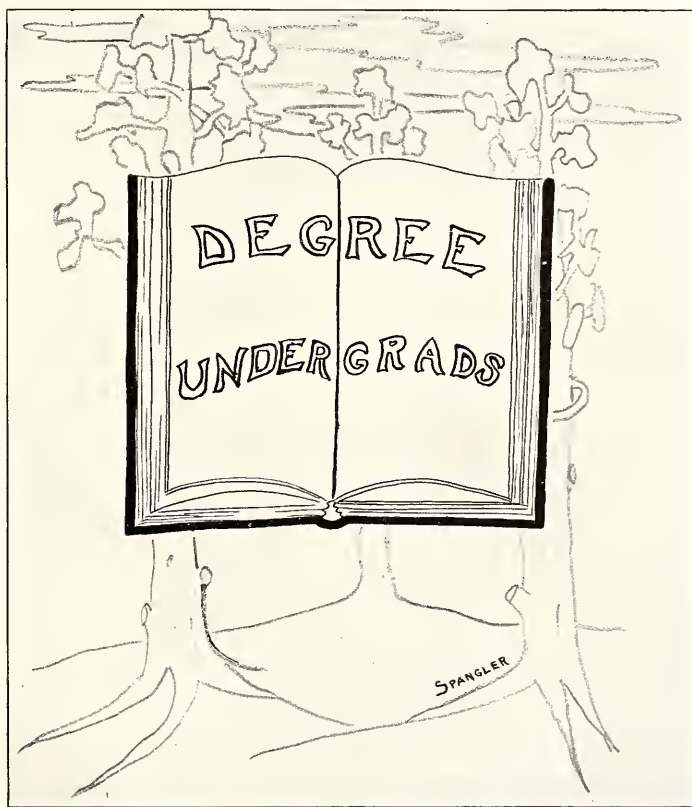 DEGREE
UNDERGRADS
SPANGLER